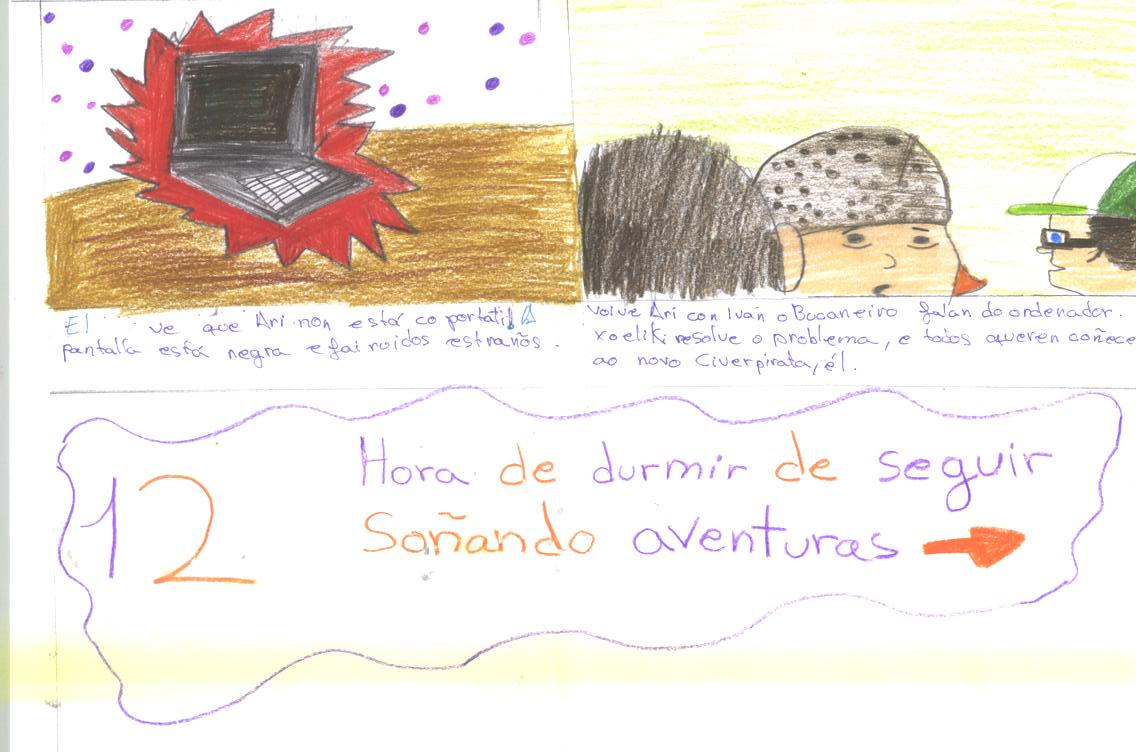 El ve que Ari non está co portatil. A
pantalla está negra e fai roidos estraños.
Volve Ari con Ivan o Bucaneiro falan do ordenador.
xoeliki resolve o problema, e todos queren coñece
ao novo Civerpirata, él.
12
Hora de durmir de seguir
Soñando aventuras